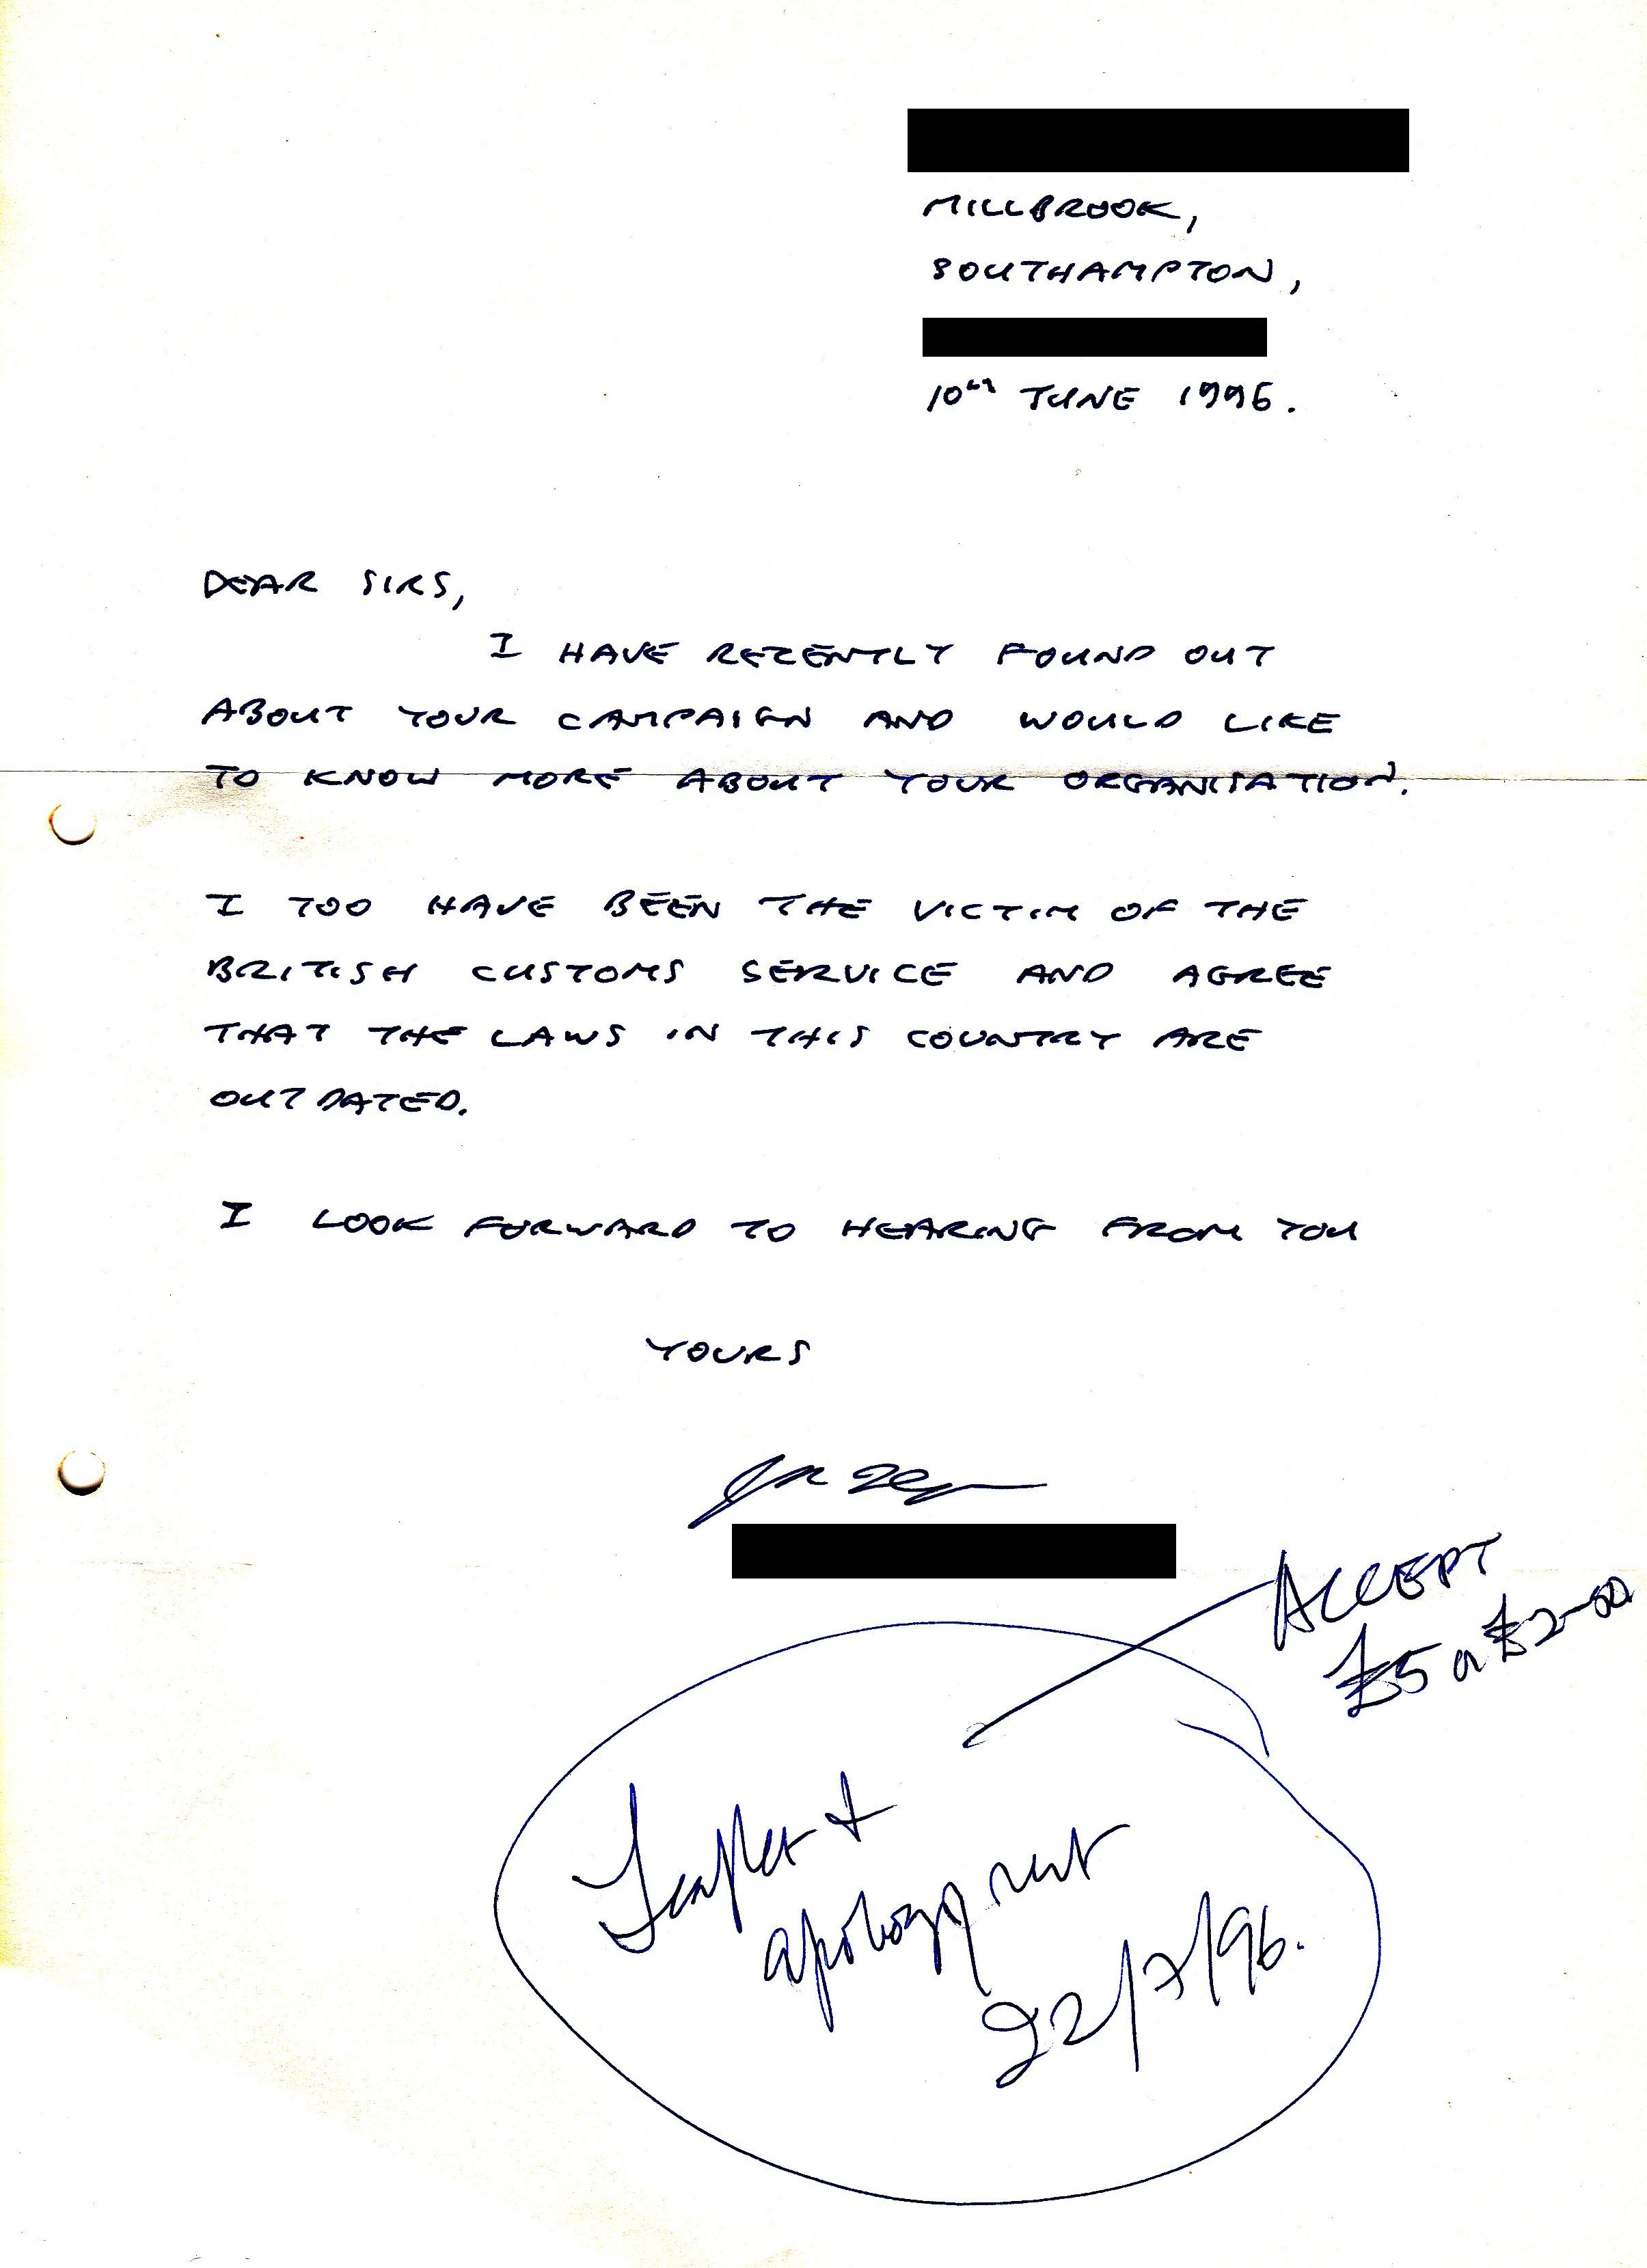 MILLBROOK,
SOUTHAMPTON,
10th JUNE 1996.
DEAR SIRS,
I HAVE RECENTLY FOUND OUT
ABOUT YOUR CAMPAIGN AND WOULD LIKE
TO KNOW MORE ABOUT YOUR ORGANISATION.
I TOO HAVE BEEN THE VICTIM OF THE
BRITISH CUSTOMS SERVICE AND AGREE
THAT THE LAWS IN THIS COUNTRY ARE
OUTDATED.
I LOOK FORWARD TO HEARING FROM YOU
YOURS
ACCEPT
£5 or £2-00
Leaflet &
apology sent
22/7/96.